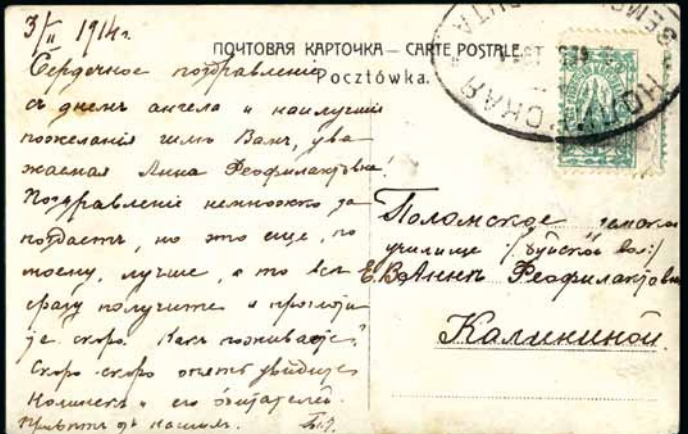 3/II 1914 г.
ПОЧТОВАЯ КАРТОЧКА — CARTE POSTALE.
Pocztówka.
Сердечное поздравленіе
съ днемъ ангела и наилучшія
пожеланія шлю Вамъ, ува-
жаемая Анна Феофилактовна!
Поздравленіе немножко за-
поздаетъ, но это еще, по
моему, лучше, а то все
сразу получите и
скоро. Какъ поживаете?
Скоро-скоро опять увидите
Нолинскъ и его обитателей.
Привѣтъ отъ
Поломское земское
училище /: Буйской вол:/
Е.В. Аннѣ Феофилактовнѣ
Калининой.